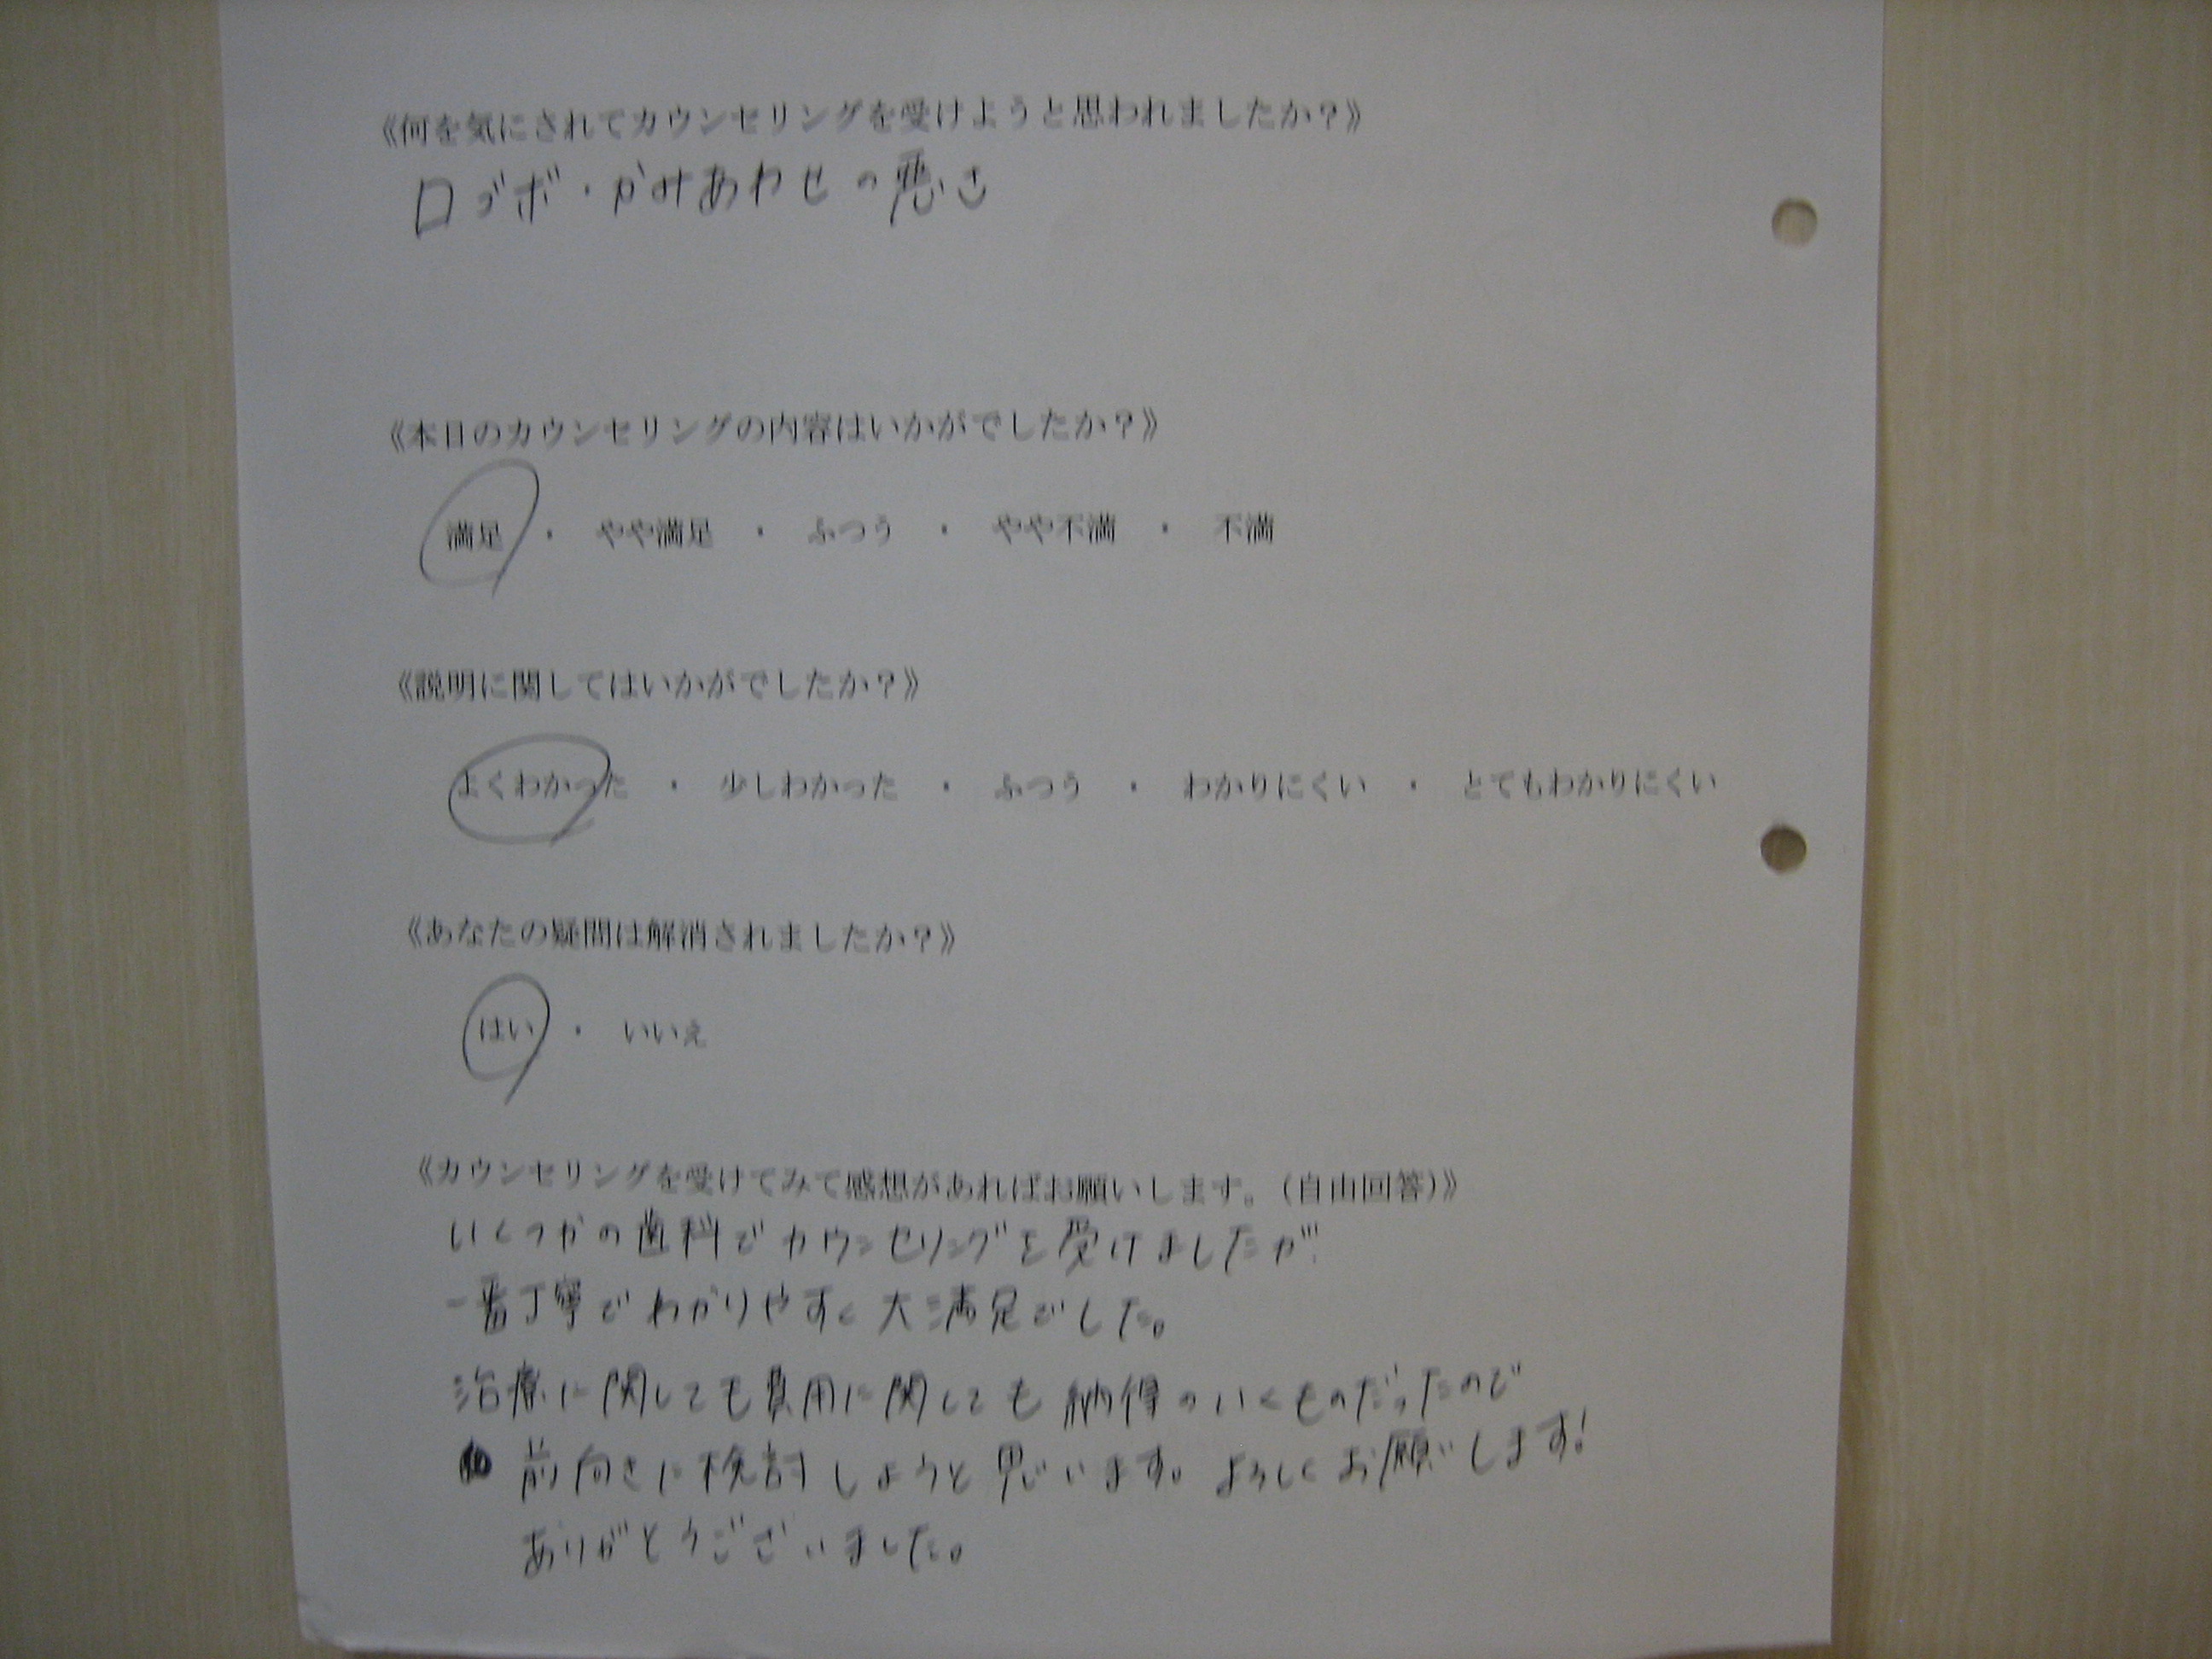 《何を気にされてカウンセリングを受けようと思われましたか？》
口ゴボ・かみあわせの悪さ
《本日のカウンセリングの内容はいかがでしたか？》
満足 ・ やや満足 ・ ふつう ・ やや不満 ・ 不満
《説明に関してはいかがでしたか？》
よくわかった ・ 少しわかった ・ ふつう ・ わかりにくい ・ とてもわかりにくい
《あなたの疑問は解消されましたか？》
はい ・ いいえ
《カウンセリングを受けてみて感想があればお願いします。（自由回答）》
いくつかの歯科でカウンセリングを受けましたが
一番丁寧でわかりやすく大満足でした。
治療に関しても費用に関しても納得のいくものだったので
前向きに検討しようと思います。よろしくお願いします!
ありがとうございました。